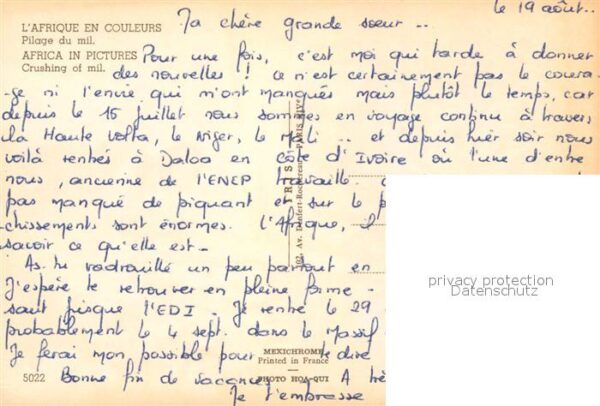 le 19 août..
L'AFRIQUE EN COULEURS
Pilage du mil.
AFRICA IN PICTURES
Crushing of mil.
Ma chère grande sœur..
Pour une fois, c'est moi qui tarde à donner
des nouvelles ! Ce n'est certainement pas le coura-
ge ni l'envie qui m'ont manqués mais plutôt le temps, car
depuis le 15 juillet nous sommes en voyage continu à travers
la Haute Volta, le Niger, le Mali .. et depuis hier soir nous
voilà rentrés à Daloa en côte d'Ivoire où l'une d'entre
nous, ancienne de l'ENEP travaille.
pas manqué de piquant et sur le p
chissements sont énormes. L'Afrique, il
savoir ce qu'elle est..
As-tu vadrouillé un peu partout en
J'espère te retrouver en pleine forme
sauf jusque l'EDI. Je rentre le 29
probablement le 4 sept. dans le Massif
Je ferai mon possible pour te dire
Bonne fin de vacances A trè
Je t'embrasse
IRIS
102, Av. Denfert-Rochereau PARIS XIVe
privacy protection
Datenschutz
MEXICHROME
Printed in France
PHOTO HOA-QUI
5022